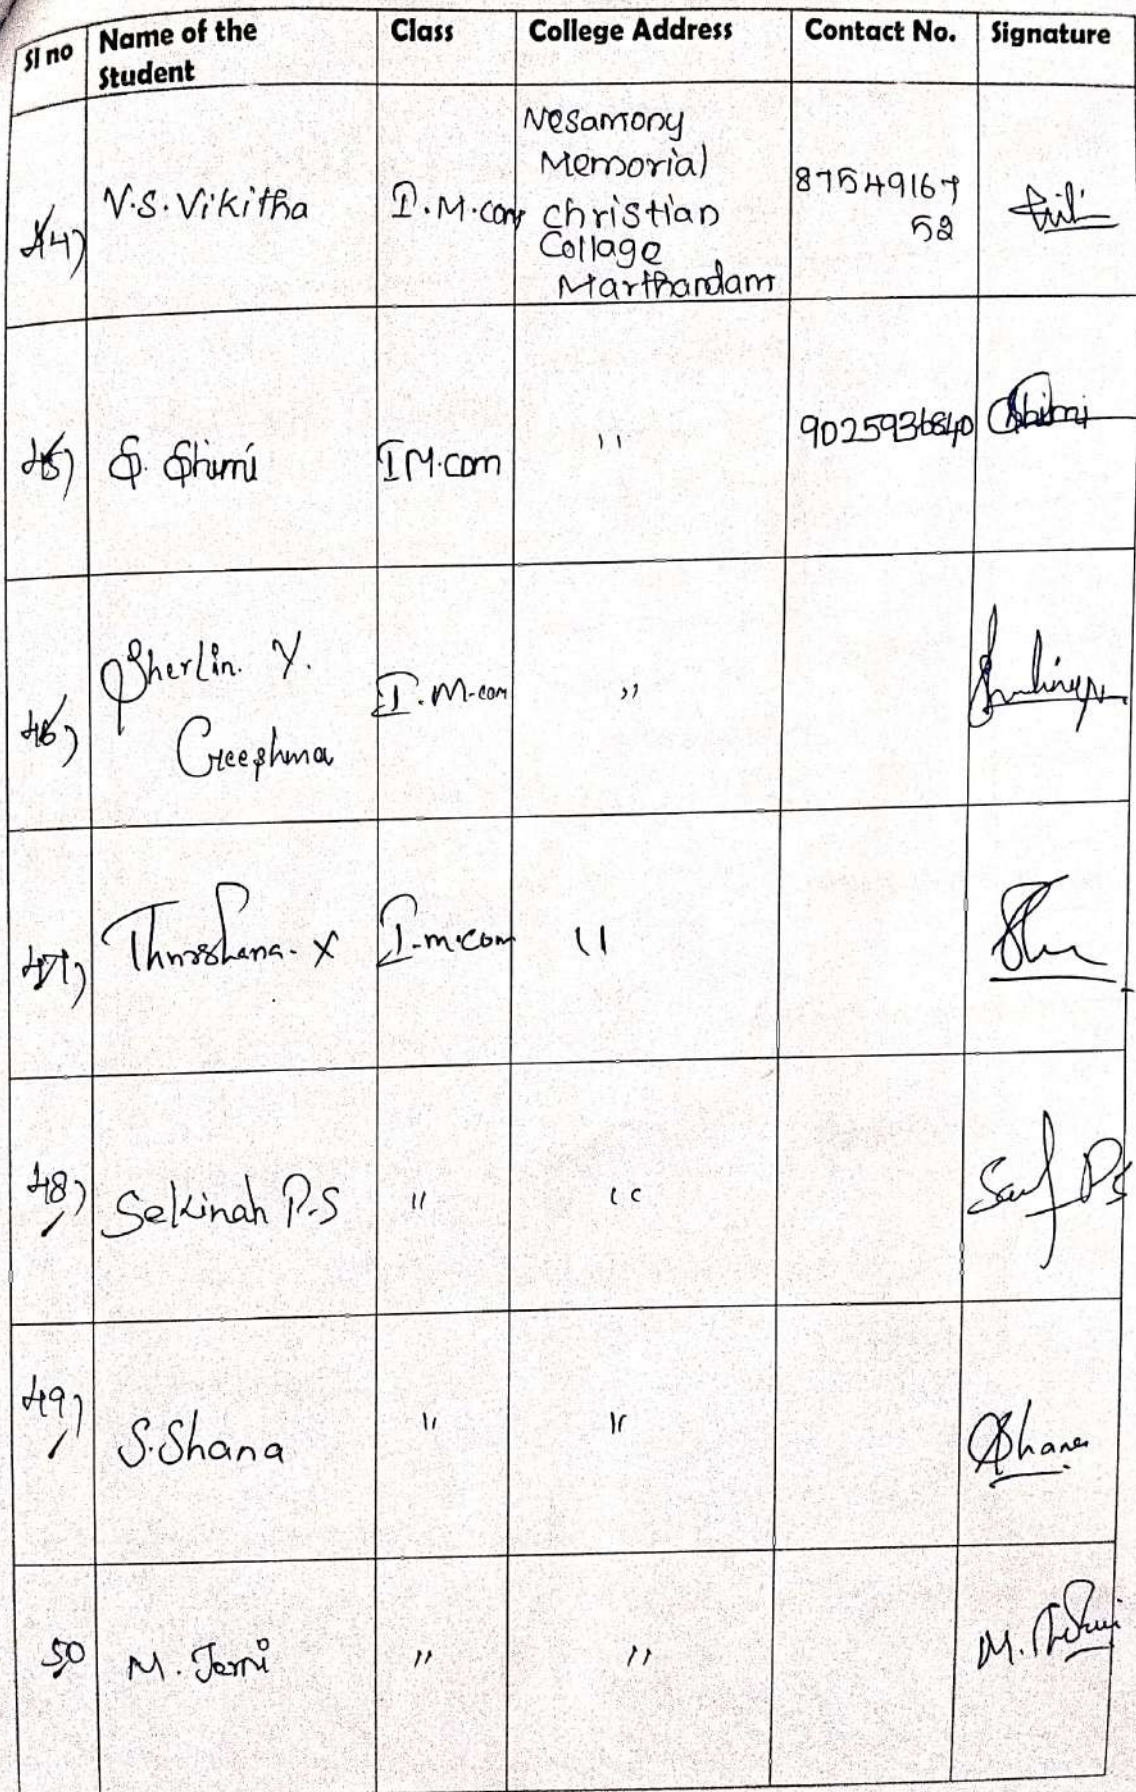 Sl no Name of the Student Class College Address Contact No. Signature
44) V.S. Vikitha I.M.com Nesamony
Memorial
christian
Collage
Marthandam
8754916752
45) S. Shimi I M.com " 9025936840 Shimi
46) Sherlin. Y.
Greeshma I.M-com "
47) X I.m.com "
48) Selkinah P.S " "
49) S.Shana " " Shana
50 M. Jemi " " M.